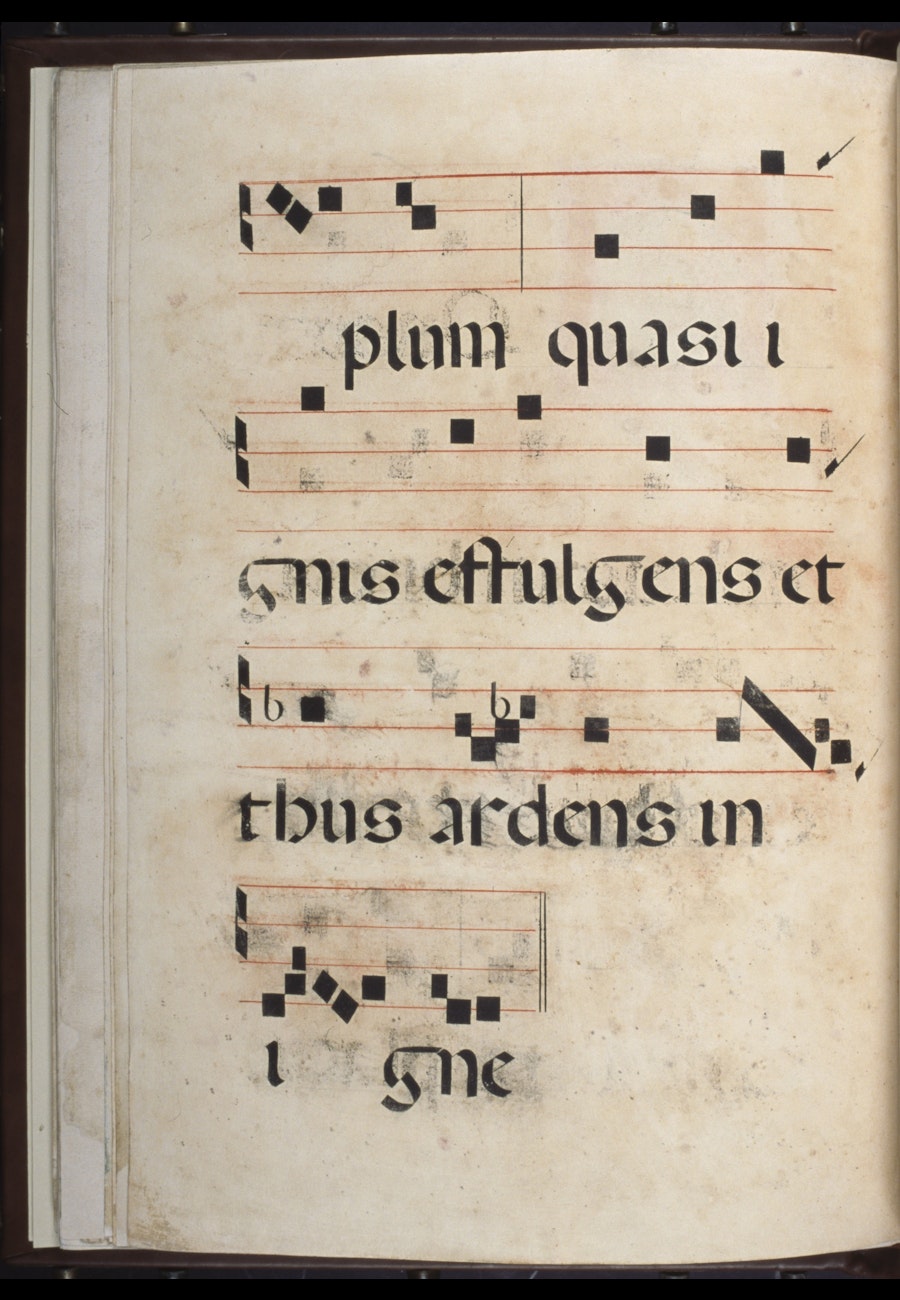 plum quasi i
gnis effulgens et
thus ardens in
i gne